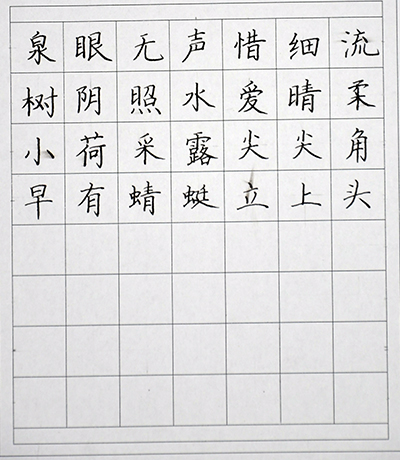 泉眼无声惜细流
树阴照水爱晴柔
小荷采露尖尖角
早有蜻蜓立上头